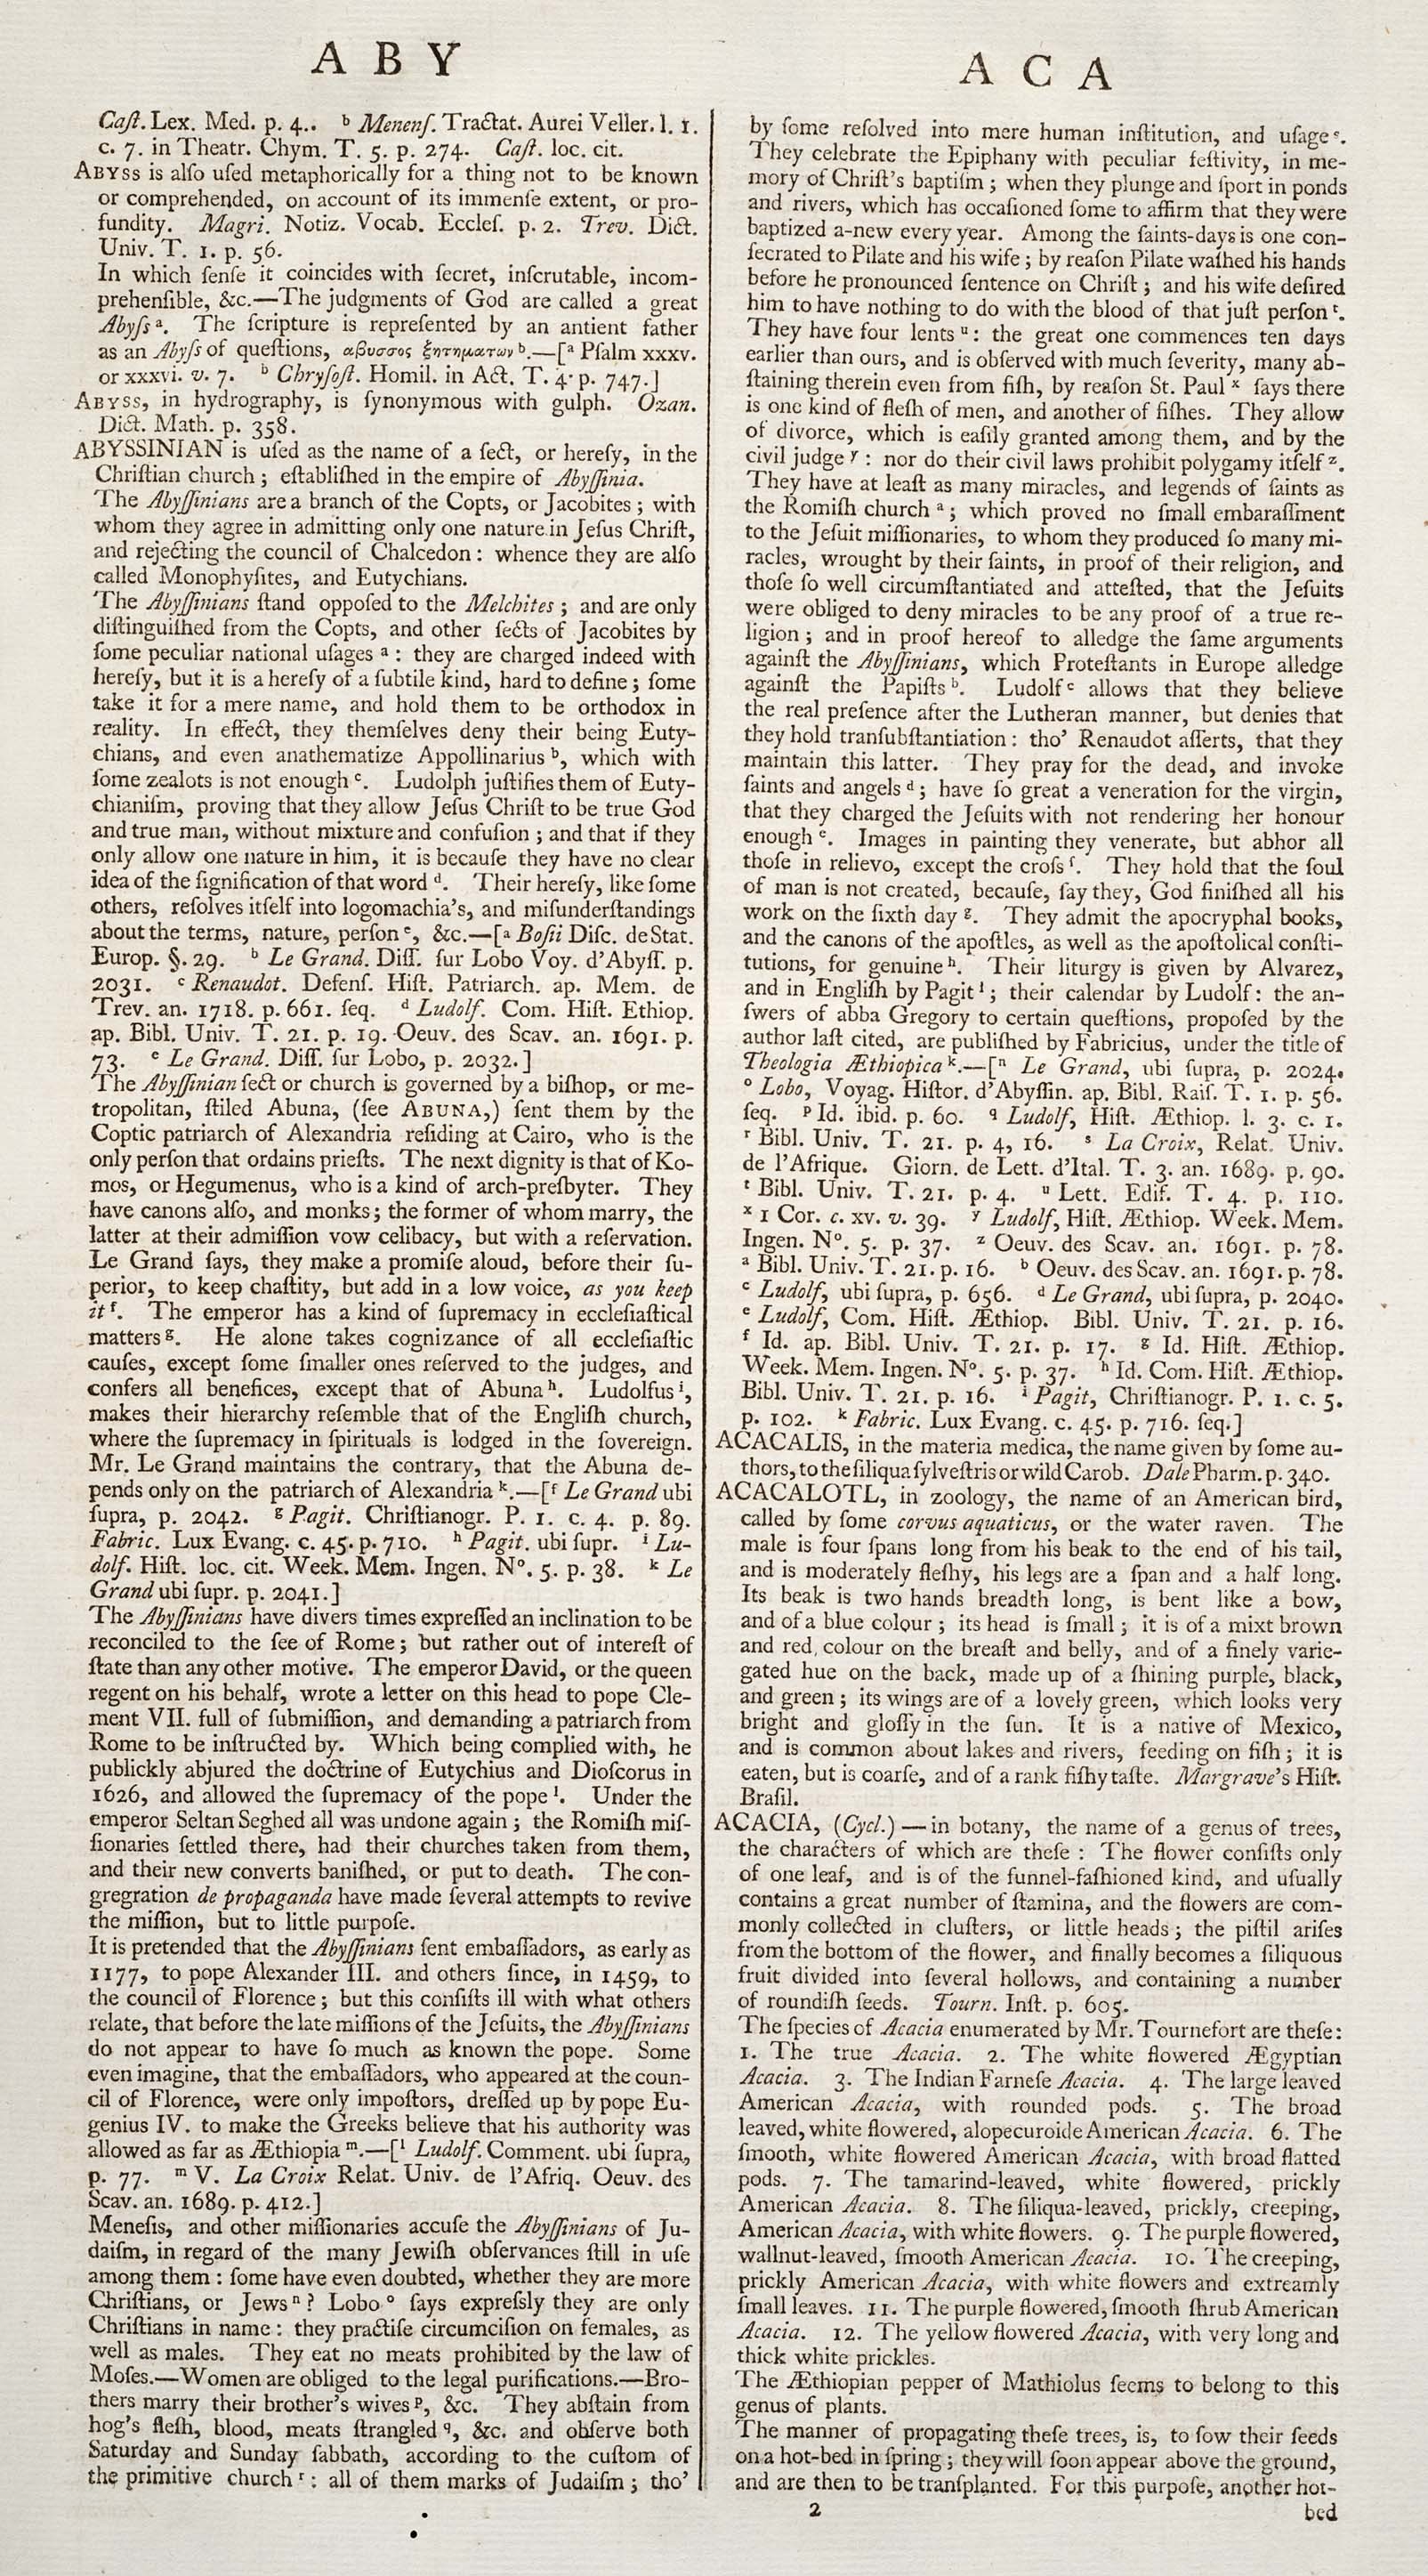 A B Y
Caſt. Lex. Med. p. 4.. ᵇ Menenſ. Tractat. Aurei Veller. l. 1.
c. 7. in Theatr. Chym. T. 5. p. 274. Caſt. loc. cit.
ABYSS is alſo uſed metaphorically for a thing not to be known
or comprehended, on account of its immenſe extent, or pro-
fundity. Magri. Notiz. Vocab. Eccleſ. p. 2. Trev. Dict.
Univ. T. 1. p. 56.
In which ſenſe it coincides with ſecret, inſcrutable, incom-
prehenſible, &c.—The judgments of God are called a great
Abyſs ᵃ. The ſcripture is repreſented by an antient father
as an Abyſs of queſtions, αβυσσος ξητηματων ᵇ.—[ᵃ Pſalm xxxv.
or xxxvi. v. 7. ᵇ Chryſoſt. Homil. in Act. T. 4. p. 747.]
ABYSS, in hydrography, is ſynonymous with gulph. Ozan.
Dict. Math. p. 358.
ABYSSINIAN is uſed as the name of a ſect, or hereſy, in the
Chriſtian church; eſtabliſhed in the empire of Abyſſinia.
The Abyſſinians are a branch of the Copts, or Jacobites; with
whom they agree in admitting only one nature in Jeſus Chriſt,
and rejecting the council of Chalcedon: whence they are alſo
called Monophyſites, and Eutychians.
The Abyſſinians ſtand oppoſed to the Melchites; and are only
diſtinguiſhed from the Copts, and other ſects of Jacobites by
ſome peculiar national uſages ᵃ: they are charged indeed with
hereſy, but it is a hereſy of a ſubtile kind, hard to define; ſome
take it for a mere name, and hold them to be orthodox in
reality. In effect, they themſelves deny their being Euty-
chians, and even anathematize Appollinarius ᵇ, which with
ſome zealots is not enough ᶜ. Ludolph juſtifies them of Euty-
chianiſm, proving that they allow Jeſus Chriſt to be true God
and true man, without mixture and confuſion; and that if they
only allow one nature in him, it is becauſe they have no clear
idea of the ſignification of that word ᵈ. Their hereſy, like ſome
others, reſolves itſelf into logomachia's, and miſunderſtandings
about the terms, nature, perſon ᵉ, &c.—[ᵃ Boſii Diſc. de Stat.
Europ. §. 29. ᵇ Le Grand. Diſſ. ſur Lobo Voy. d'Abyſſ. p.
2031. ᶜ Renaudot. Defenſ. Hiſt. Patriarch. ap. Mem. de
Trev. an. 1718. p. 661. ſeq. ᵈ Ludolf. Com. Hiſt. Ethiop.
ap. Bibl. Univ. T. 21. p. 19. Oeuv. des Scav. an. 1691. p.
73. ᵉ Le Grand. Diſſ. ſur Lobo, p. 2032.]
The Abyſſinian ſect or church is governed by a biſhop, or me-
tropolitan, ſtiled Abuna, (ſee ABUNA,) ſent them by the
Coptic patriarch of Alexandria reſiding at Cairo, who is the
only perſon that ordains prieſts. The next dignity is that of Ko-
mos, or Hegumenus, who is a kind of arch-preſbyter. They
have canons alſo, and monks; the former of whom marry, the
latter at their admiſſion vow celibacy, but with a reſervation.
Le Grand ſays, they make a promiſe aloud, before their ſu-
perior, to keep chaſtity, but add in a low voice, as you keep
it ᶠ. The emperor has a kind of ſupremacy in eccleſiaſtical
matters ᵍ. He alone takes cognizance of all eccleſiaſtic
cauſes, except ſome ſmaller ones reſerved to the judges, and
confers all benefices, except that of Abuna ʰ. Ludolfus ⁱ,
makes their hierarchy reſemble that of the Engliſh church,
where the ſupremacy in ſpirituals is lodged in the ſovereign.
Mr. Le Grand maintains the contrary, that the Abuna de-
pends only on the patriarch of Alexandria ᵏ.—[ᶠ Le Grand ubi
ſupra, p. 2042. ᵍ Pagit. Chriſtianogr. P. 1. c. 4. p. 89.
Fabric. Lux Evang. c. 45. p. 710. ʰ Pagit. ubi ſupr. ⁱ Lu-
dolf. Hiſt. loc. cit. Week. Mem. Ingen. Nº. 5. p. 38. ᵏ Le
Grand ubi ſupr. p. 2041.]
The Abyſſinians have divers times expreſſed an inclination to be
reconciled to the ſee of Rome; but rather out of intereſt of
ſtate than any other motive. The emperor David, or the queen
regent on his behalf, wrote a letter on this head to pope Cle-
ment VII. full of ſubmiſſion, and demanding a patriarch from
Rome to be inſtructed by. Which being complied with, he
publickly abjured the doctrine of Eutychius and Dioſcorus in
1626, and allowed the ſupremacy of the pope ˡ. Under the
emperor Seltan Seghed all was undone again; the Romiſh miſ-
ſionaries ſettled there, had their churches taken from them,
and their new converts baniſhed, or put to death. The con-
gregration de propaganda have made ſeveral attempts to revive
the miſſion, but to little purpoſe.
It is pretended that the Abyſſinians ſent embaſſadors, as early as
1177, to pope Alexander III. and others ſince, in 1459, to
the council of Florence; but this conſiſts ill with what others
relate, that before the late miſſions of the Jeſuits, the Abyſſinians
do not appear to have ſo much as known the pope. Some
even imagine, that the embaſſadors, who appeared at the coun-
cil of Florence, were only impoſtors, dreſſed up by pope Eu-
genius IV. to make the Greeks believe that his authority was
allowed as far as Æthiopia ᵐ.—[ˡ Ludolf. Comment. ubi ſupra,
p. 77. ᵐ V. La Croix Relat. Univ. de l'Afriq. Oeuv. des
Scav. an. 1689. p. 412.]
Meneſis, and other miſſionaries accuſe the Abyſſinians of Ju-
daiſm, in regard of the many Jewiſh obſervances ſtill in uſe
among them: ſome have even doubted, whether they are more
Chriſtians, or Jews ⁿ? Lobo ᵒ ſays expreſsly they are only
Chriſtians in name: they practiſe circumciſion on females, as
well as males. They eat no meats prohibited by the law of
Moſes.—Women are obliged to the legal purifications.—Bro-
thers marry their brother's wives ᵖ, &c. They abſtain from
hog's fleſh, blood, meats ſtrangled ᑫ, &c. and obſerve both
Saturday and Sunday ſabbath, according to the cuſtom of
the primitive church ʳ: all of them marks of Judaiſm; tho'
A C A
by ſome reſolved into mere human inſtitution, and uſage ˢ.
They celebrate the Epiphany with peculiar feſtivity, in me-
mory of Chriſt's baptiſm; when they plunge and ſport in ponds
and rivers, which has occaſioned ſome to affirm that they were
baptized a-new every year. Among the ſaints-days is one con-
ſecrated to Pilate and his wife; by reaſon Pilate waſhed his hands
before he pronounced ſentence on Chriſt; and his wife deſired
him to have nothing to do with the blood of that juſt perſon ᵗ.
They have four lents ᵘ: the great one commences ten days
earlier than ours, and is obſerved with much ſeverity, many ab-
ſtaining therein even from fiſh, by reaſon St. Paul ˣ ſays there
is one kind of fleſh of men, and another of fiſhes. They allow
of divorce, which is eaſily granted among them, and by the
civil judge ʸ: nor do their civil laws prohibit polygamy itſelf ᶻ.
They have at leaſt as many miracles, and legends of ſaints as
the Romiſh church ᵃ; which proved no ſmall embaraſſment
to the Jeſuit miſſionaries, to whom they produced ſo many mi-
racles, wrought by their ſaints, in proof of their religion, and
thoſe ſo well circumſtantiated and atteſted, that the Jeſuits
were obliged to deny miracles to be any proof of a true re-
ligion; and in proof hereof to alledge the ſame arguments
againſt the Abyſſinians, which Proteſtants in Europe alledge
againſt the Papiſts ᵇ. Ludolf ᶜ allows that they believe
the real preſence after the Lutheran manner, but denies that
they hold tranſubſtantiation: tho' Renaudot aſſerts, that they
maintain this latter. They pray for the dead, and invoke
ſaints and angels ᵈ; have ſo great a veneration for the virgin,
that they charged the Jeſuits with not rendering her honour
enough ᵉ. Images in painting they venerate, but abhor all
thoſe in relievo, except the croſs ᶠ. They hold that the ſoul
of man is not created, becauſe, ſay they, God finiſhed all his
work on the ſixth day ᵍ. They admit the apocryphal books,
and the canons of the apoſtles, as well as the apoſtolical conſti-
tutions, for genuine ʰ. Their liturgy is given by Alvarez,
and in Engliſh by Pagit ⁱ; their calendar by Ludolf: the an-
ſwers of abba Gregory to certain queſtions, propoſed by the
author laſt cited, are publiſhed by Fabricius, under the title of
Theologia Æthiopica ᵏ.—[ⁿ Le Grand, ubi ſupra, p. 2024.
ᵒ Lobo, Voyag. Hiſtor. d'Abyſſin. ap. Bibl. Raiſ. T. 1. p. 56.
ſeq. ᵖ Id. ibid. p. 60. ᑫ Ludolf, Hiſt. Æthiop. l. 3. c. 1.
ʳ Bibl. Univ. T. 21. p. 4, 16. ˢ La Croix, Relat. Univ.
de l'Afrique. Giorn. de Lett. d'Ital. T. 3. an. 1689. p. 90.
ᵗ Bibl. Univ. T. 21. p. 4. ᵘ Lett. Edif. T. 4. p. 110.
ˣ 1 Cor. c. xv. v. 39. ʸ Ludolf, Hiſt. Æthiop. Week. Mem.
Ingen. Nº. 5. p. 37. ᶻ Oeuv. des Scav. an. 1691. p. 78.
ᵃ Bibl. Univ. T. 21. p. 16. ᵇ Oeuv. des Scav. an. 1691. p. 78.
ᶜ Ludolf, ubi ſupra, p. 656. ᵈ Le Grand, ubi ſupra, p. 2040.
ᵉ Ludolf, Com. Hiſt. Æthiop. Bibl. Univ. T. 21. p. 16.
ᶠ Id. ap. Bibl. Univ. T. 21. p. 17. ᵍ Id. Hiſt. Æthiop.
Week. Mem. Ingen. Nº. 5. p. 37. ʰ Id. Com. Hiſt. Æthiop.
Bibl. Univ. T. 21. p. 16. ⁱ Pagit, Chriſtianogr. P. 1. c. 5.
p. 102. ᵏ Fabric. Lux Evang. c. 45. p. 716. ſeq.]
ACACALIS, in the materia medica, the name given by ſome au-
thors, to the ſiliqua ſylveſtris or wild Carob. Dale Pharm. p. 340.
ACACALOTL, in zoology, the name of an American bird,
called by ſome corvus aquaticus, or the water raven. The
male is four ſpans long from his beak to the end of his tail,
and is moderately fleſhy, his legs are a ſpan and a half long.
Its beak is two hands breadth long, is bent like a bow,
and of a blue colour; its head is ſmall; it is of a mixt brown
and red colour on the breaſt and belly, and of a finely varie-
gated hue on the back, made up of a ſhining purple, black,
and green; its wings are of a lovely green, which looks very
bright and gloſſy in the ſun. It is a native of Mexico,
and is common about lakes and rivers, feeding on fiſh; it is
eaten, but is coarſe, and of a rank fiſhy taſte. Margrave's Hiſt.
Braſil.
ACACIA, (Cycl.) — in botany, the name of a genus of trees,
the characters of which are theſe: The flower conſiſts only
of one leaf, and is of the funnel-faſhioned kind, and uſually
contains a great number of ſtamina, and the flowers are com-
monly collected in cluſters, or little heads; the piſtil ariſes
from the bottom of the flower, and finally becomes a ſiliquous
fruit divided into ſeveral hollows, and containing a number
of roundiſh ſeeds. Tourn. Inſt. p. 605.
The ſpecies of Acacia enumerated by Mr. Tournefort are theſe:
1. The true Acacia. 2. The white flowered Ægyptian
Acacia. 3. The Indian Farneſe Acacia. 4. The large leaved
American Acacia, with rounded pods. 5. The broad
leaved, white flowered, alopecuroide American Acacia. 6. The
ſmooth, white flowered American Acacia, with broad flatted
pods. 7. The tamarind-leaved, white flowered, prickly
American Acacia. 8. The ſiliqua-leaved, prickly, creeping,
American Acacia, with white flowers. 9. The purple flowered,
wallnut-leaved, ſmooth American Acacia. 10. The creeping,
prickly American Acacia, with white flowers and extreamly
ſmall leaves. 11. The purple flowered, ſmooth ſhrub American
Acacia. 12. The yellow flowered Acacia, with very long and
thick white prickles.
The Æthiopian pepper of Mathiolus ſeems to belong to this
genus of plants.
The manner of propagating theſe trees, is, to ſow their ſeeds
on a hot-bed in ſpring; they will ſoon appear above the ground,
and are then to be tranſplanted. For this purpoſe, another hot-
2
bed